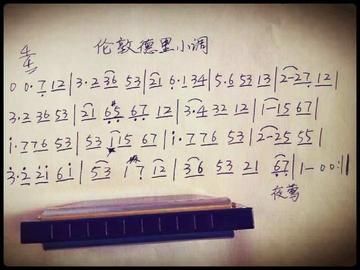 伦敦德里小调
4/4
0 0·7 12 | 3·2 36 53 | 21 6·134 | 5·6 53 13 | 2-27 12 |
3·2 36 53 | 21 65 67 12 | 3·4 32 12 | 1-15 67 |
1·776 53 | 53 15 67 | 1·776 53 | 2-25 55 |
3·2 21 61 | 53 17 12 | 36 53 21 67 | 1-00:||
夜莺